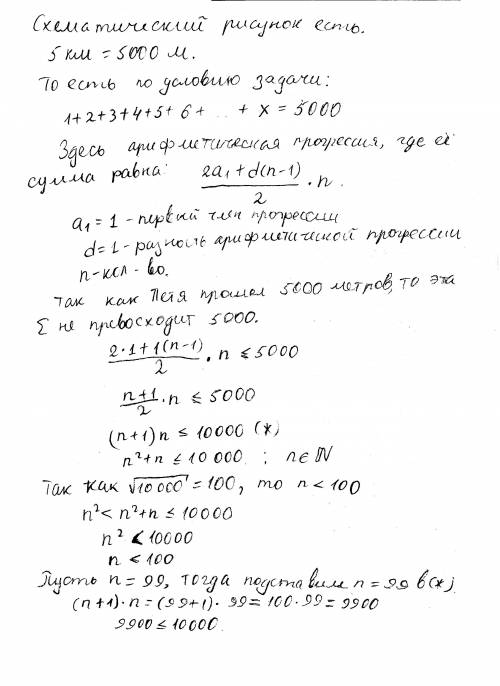 Схематический рисунок есть.
5 км = 5000 м.
То есть по условию задачи:
1+2+3+4+5+6+ ... + x = 5000
Здесь арифметическая прогрессия, где её
сумма равна: (2a₁ + d(n-1))/2 · n.
a₁ = 1 - первый член прогрессии
d = 1 - разность арифметической прогрессии
n - кол - во.
Так как Петя прошел 5000 метров, то эта
Σ не превосходит 5000.
(2·1+1(n-1))/2 · n ≤ 5000
(n+1)/2 · n ≤ 5000
(n+1)n ≤ 10000 (*)
n²+n ≤ 10 000 ; n∈ℕ
Так как √10 000 = 100, то n < 100
n² < n²+n ≤ 10000
n² < 10000
n < 100
Пусть n = 99, тогда подставим n = 99 в (*)
(n+1)·n = (99+1)·99 = 100·99 = 9900
9900 ≤ 10000.